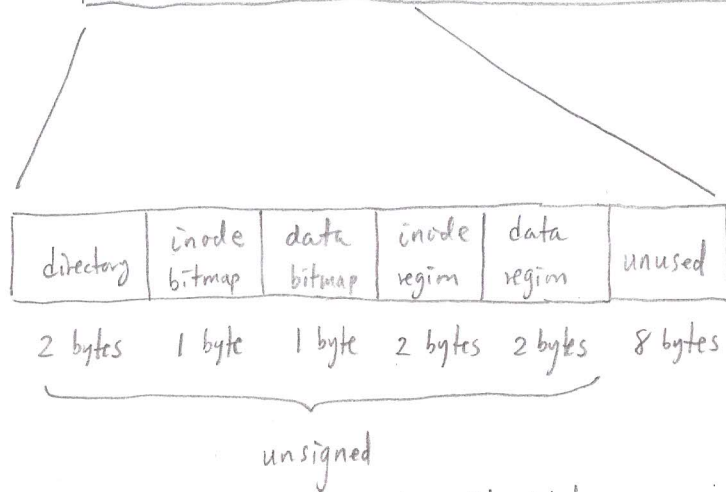 directory
inode
bitmap
data
bitmap
inode
region
data
region
unused
2 bytes 1 byte 1 byte 2 bytes 2 bytes 8 bytes
unsigned